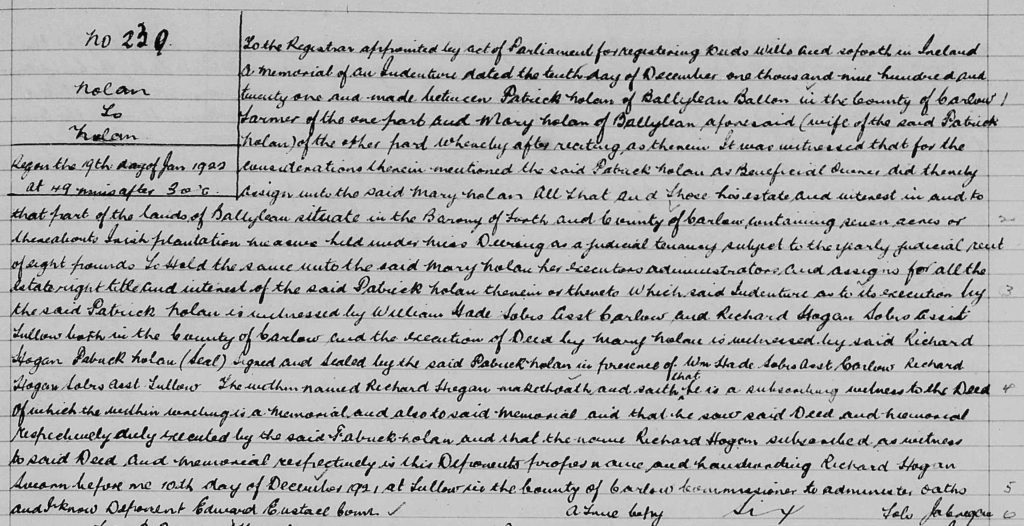 No 239.
Nolan
To
Nolan
Reg on the 19th day of Jan 1922
at 49 mins after 3 o'c.
To the Registrar appointed by act of Parliament for registering Deeds Wills and soforth in Ireland
A Memorial of an Indenture dated the tenth day of December one thousand nine hundred and
twenty one and made between Patrick Nolan of Ballylean Ballon in the County of Carlow 1
Farmer of the one part and Mary Nolan of Ballylean aforesaid (wife of the said Patrick
Nolan) of the other part Whereby after reciting as therein It was witnessed that for the
considerations therein mentioned the said Patrick Nolan as Beneficial Owner did thereby
assign unto the said Mary Nolan All That and Those his estate and interest in and to
that part of the lands of Ballylean situate in the Barony of Forth and County of Carlow containing seven acres or 2
thereabouts Irish plantation measure held under Miss Deering as a judicial tenancy subject to the yearly judicial rent
of eight pounds To Hold the same unto the said Mary Nolan her executors administrators and assigns for all the
estate right title and interest of the said Patrick Nolan therein or thereto Which said Indenture as to its execution by 3
the said Patrick Nolan is witnessed by William Hade Solrs Asst Carlow and Richard Hogan Solrs Asst
Tullow both in the County of Carlow and the execution of Deed by Mary Nolan is witnessed by said Richard
Hogan Patrick Nolan (Seal) Signed and Sealed by the said Patrick Nolan in presence of. Wm Hade Solrs Asst Carlow Richard
Hogan Solrs Asst Tullow The within named Richard Hogan maketh oath and saith that he is a subscribing witness to the Deed 4
of which the within writing is a Memorial and also to said Memorial and that he saw said Deed and Memorial
respectively duly executed by the said Patrick Nolan and that the name Richard Hogan subscribed as witness
to said Deed and Memorial respectively is this Deponents proper name and handwriting Richard Hogan
Sworn before me 10th day of December 1921 at Tullow in the County of Carlow Commissioner to administer oaths 5
and I know Deponent Edward Eustace Comr. A True Copy Six Fols 6